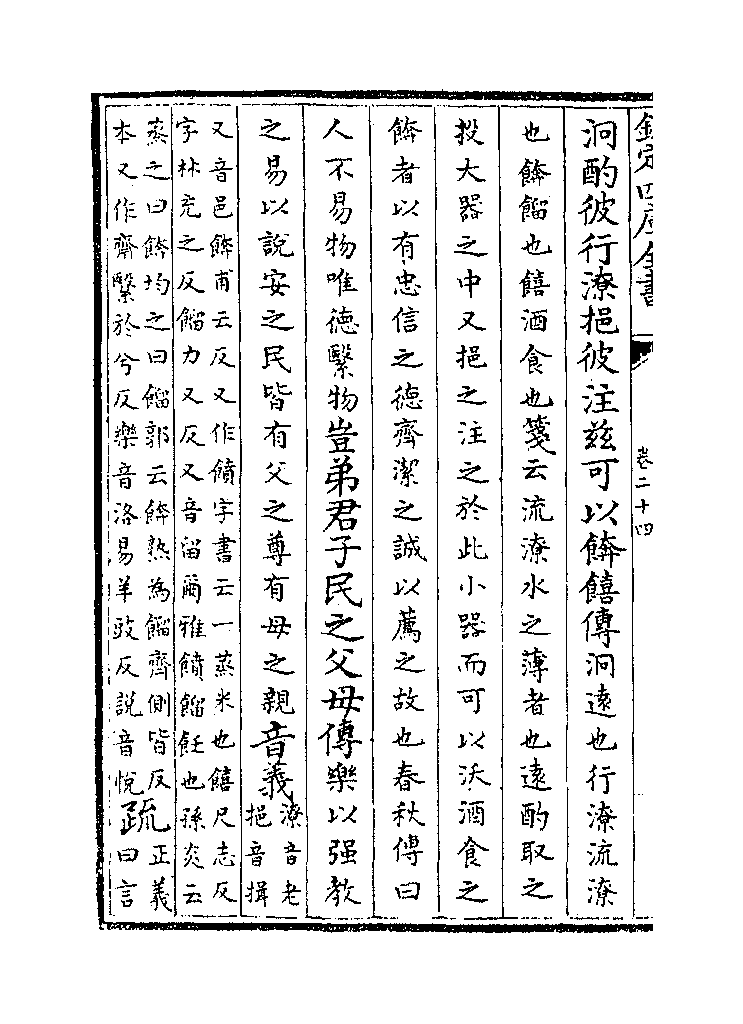 欽定四庫全書
卷二十四
泂酌彼行潦挹彼注兹可以餴饎傳泂逺也行潦流潦
也餴餾也饎酒食也箋云流潦水之薄者也逺酌取之
投大器之中又挹之注之於此小器而可以沃酒食之
餴者以有忠信之徳齊潔之誠以薦之故也春秋傳曰
人不易物唯徳繄物豈弟君子民之父母傳樂以强教
之易以說安之民皆有父之尊有母之親音義潦音老
挹音揖
又音邑餴甫云反又作饙字書云一蒸米也饎尺志反
字林充之反餾力又反又音留爾雅饙餾飪也孫炎云
蒸之曰餴均之曰餾郭云餴熟為餾齊側皆反
本又作齋繄於兮反樂音洛易羊豉反説音悅
疏正義
曰言